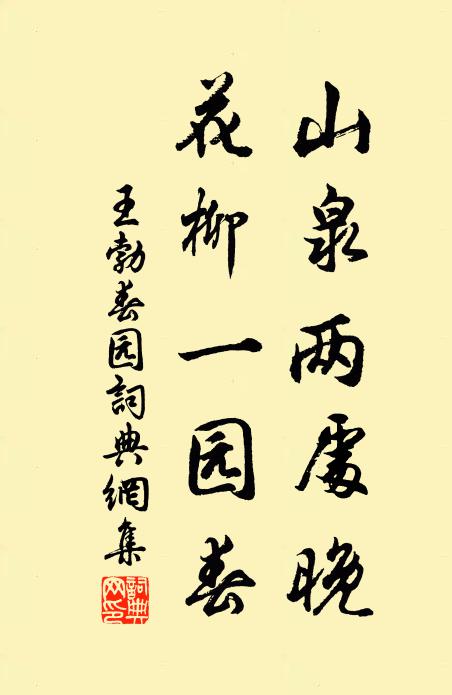 山泉两處晚
花柳一园春
王勃春园詞典網集
詞典网印